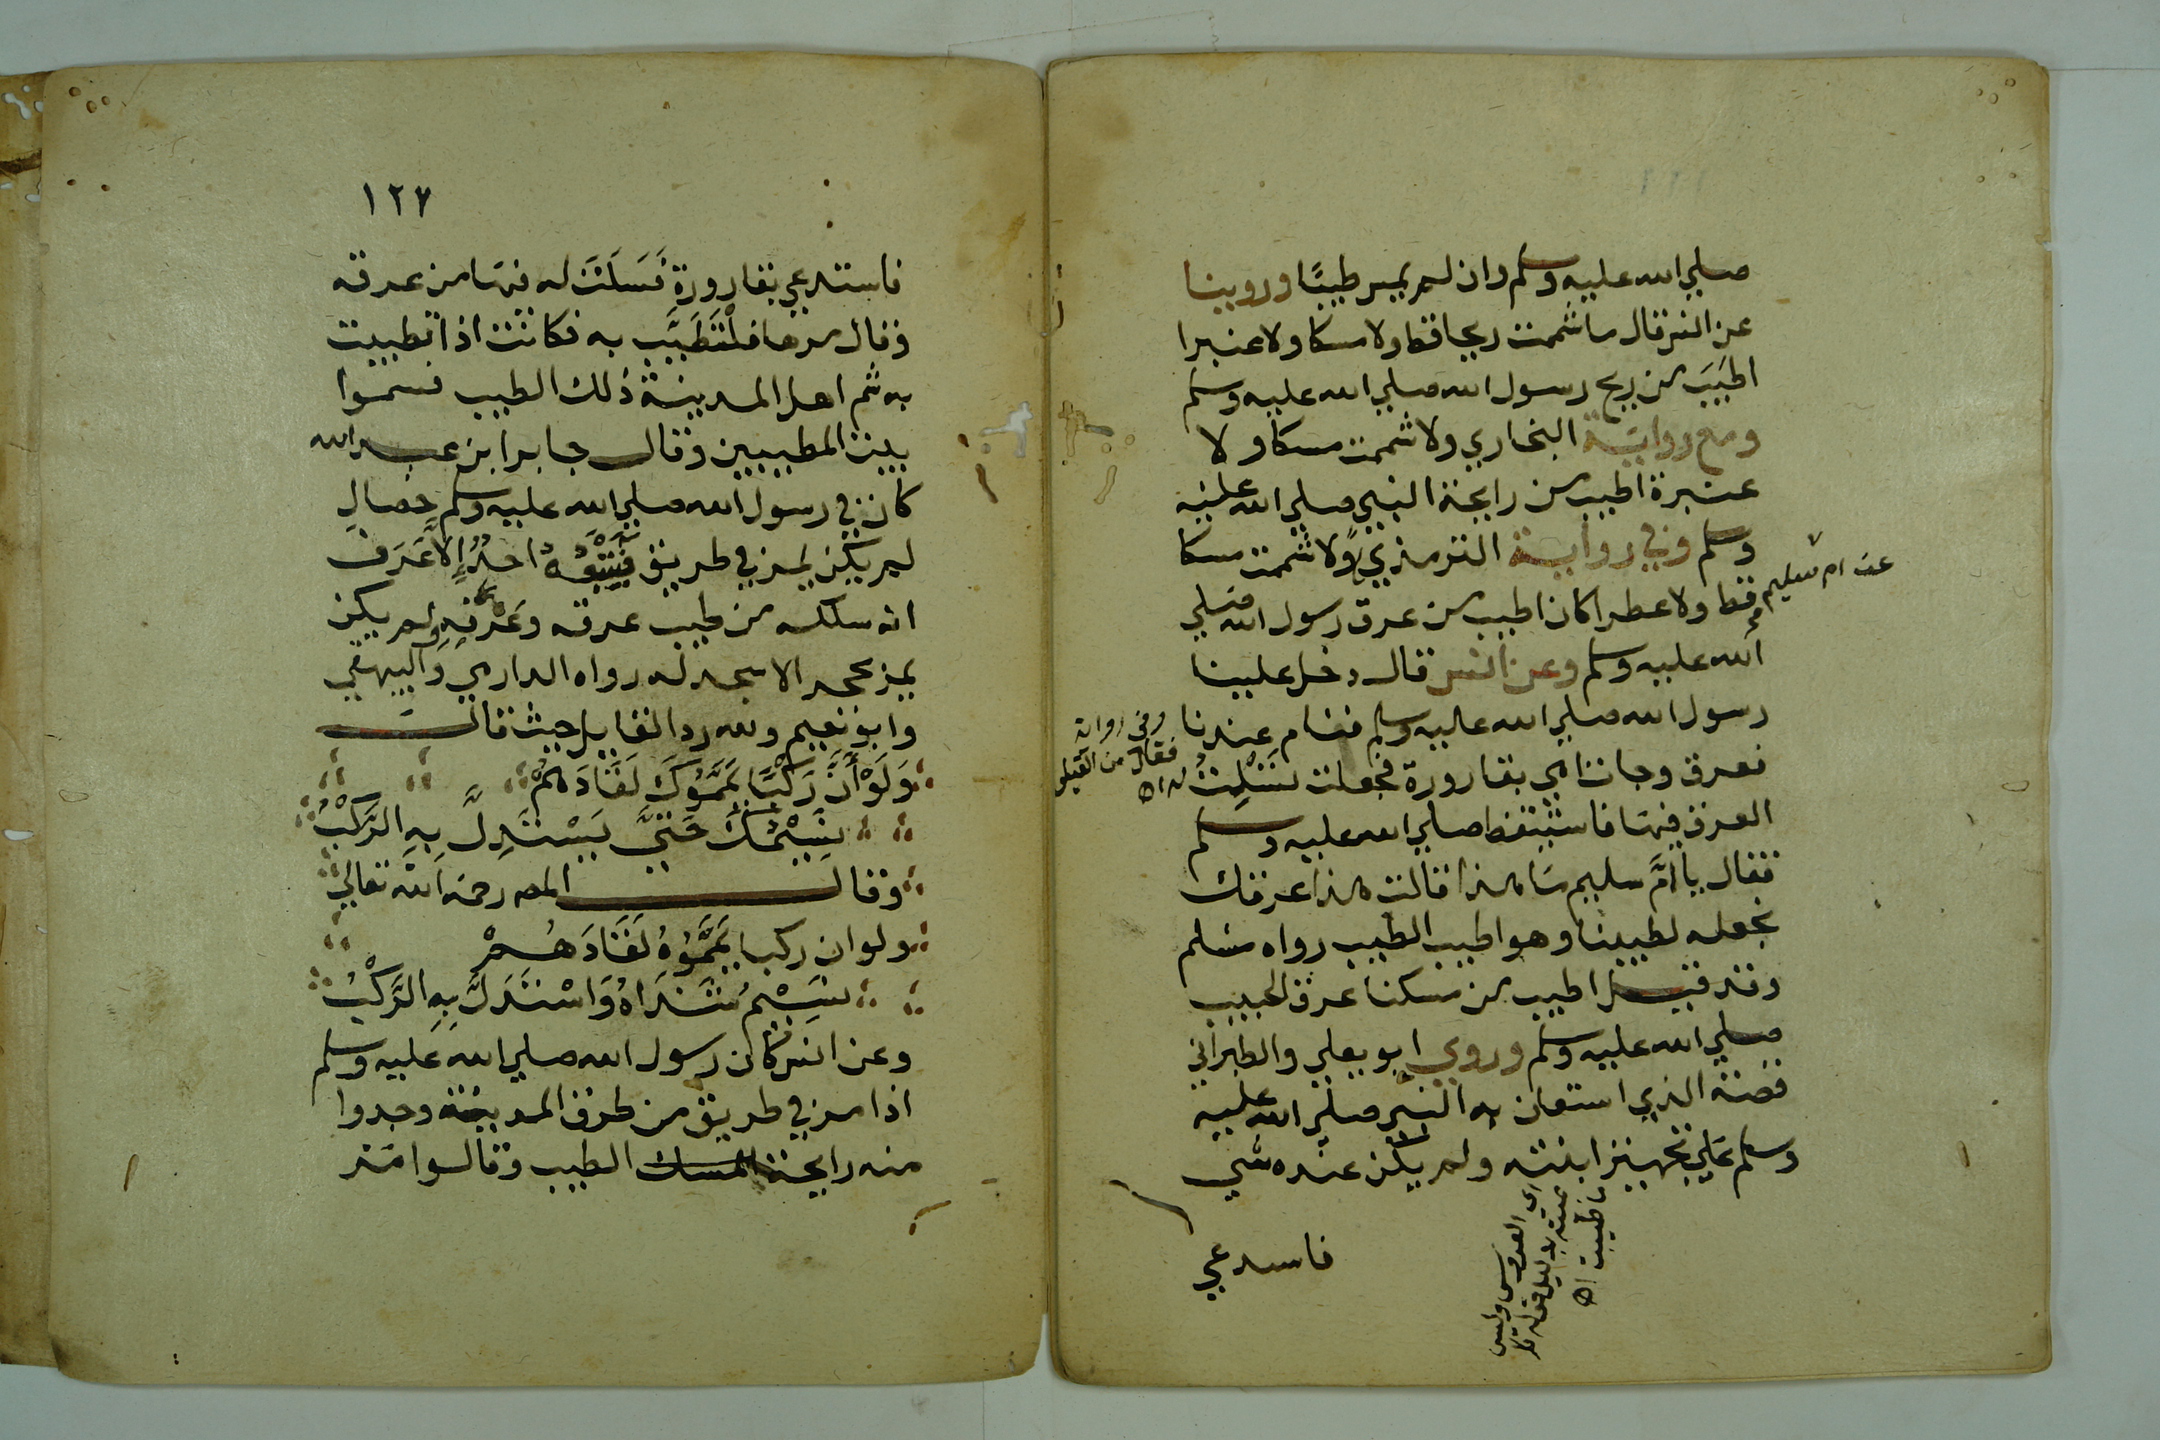 صلي الله عليه وسلم وان لم يمس طيبًا وروينا
عن انس قال ما شممت ريحا قط ولا مسكا ولا عنبرا
اطيَبَ من ريح رسول الله صلي الله عليه وسلم
ومع رواية البخاري ولا شممت مسكا ولا
عنبرة اطيب من رايحة النبي صلي الله عليه
وسلم وفي رواية الترمذي ولا شممت مسكا
قط ولا عطرا كان اطيب من عرق رسول الله صلي
عن ام سليم
الله عليه وسلم وعن انس قال دخل علينا
رسول الله صلي الله عليه وسلم فنام عندنا
وفي رواية
فقال من القيلو
له اه
فعرق وجات امي بقارورة فجعلت تسْلِتُ
العرق فيها فاستيقظ صلي الله عليه وسلم
فقال يا امَّ سليم ما هذا قالت هذا عرقك
نجعله لطيبنا وهو اطيب الطيب رواه مسلم
وقد قيل اطيب من مسكنا عرق الحبيب
صلي الله عليه وسلم وروي ابو يعلي والطبراني
قصة الذي استعان به النبي صلي الله عليه
وسلم علي تجهيز ابنته ولم يكن عنده شي
اي العروس وليس
فاستدعي
١٢٧
فاستدعي بقارورة فَسَلَتَ له فيها من عرقه
وقال مرها فلْتَطَيَّب به فكانت اذا تطيبت
به شم اهل المدينة ذلك الطيب فسموا
بيت المطيبين وقال جابر ابن عبد الله
كان في رسول الله صلي الله عليه وسلم خصال
لم يكن يمر في طريق فَيَتْبَعُهُ احدٌ إلا عَرَف
انه سلكه من طيب عرقه وعَرْفِه ولم يكن
يمر بحجر الا سجد له رواه الدارمي والبيهقي
وابو نعيم ولله در القايل حيث قال
وَلَوْ أَنَّ رَكْبًا يَمَّمُوكَ لَقَادَهُمْ
نَسِيْمُكَ حَتَّي يَسْتَدِلَّ بِهِ الرَّكْبُ
وقال المص رحمه الله تعالي
ولو ان ركبا يَمَّمُوْهُ لَقَادَهُمْ
نَسِيْمُ شَذَاهُ وَاسْتَدَلَّ بِهِ الرَّكْبُ
وعن انس كان رسول الله صلي الله عليه وسلم
اذا مر في طريق من طرق المدينة وجدوا
منه رايحة المسك الطيب وقالوا مر